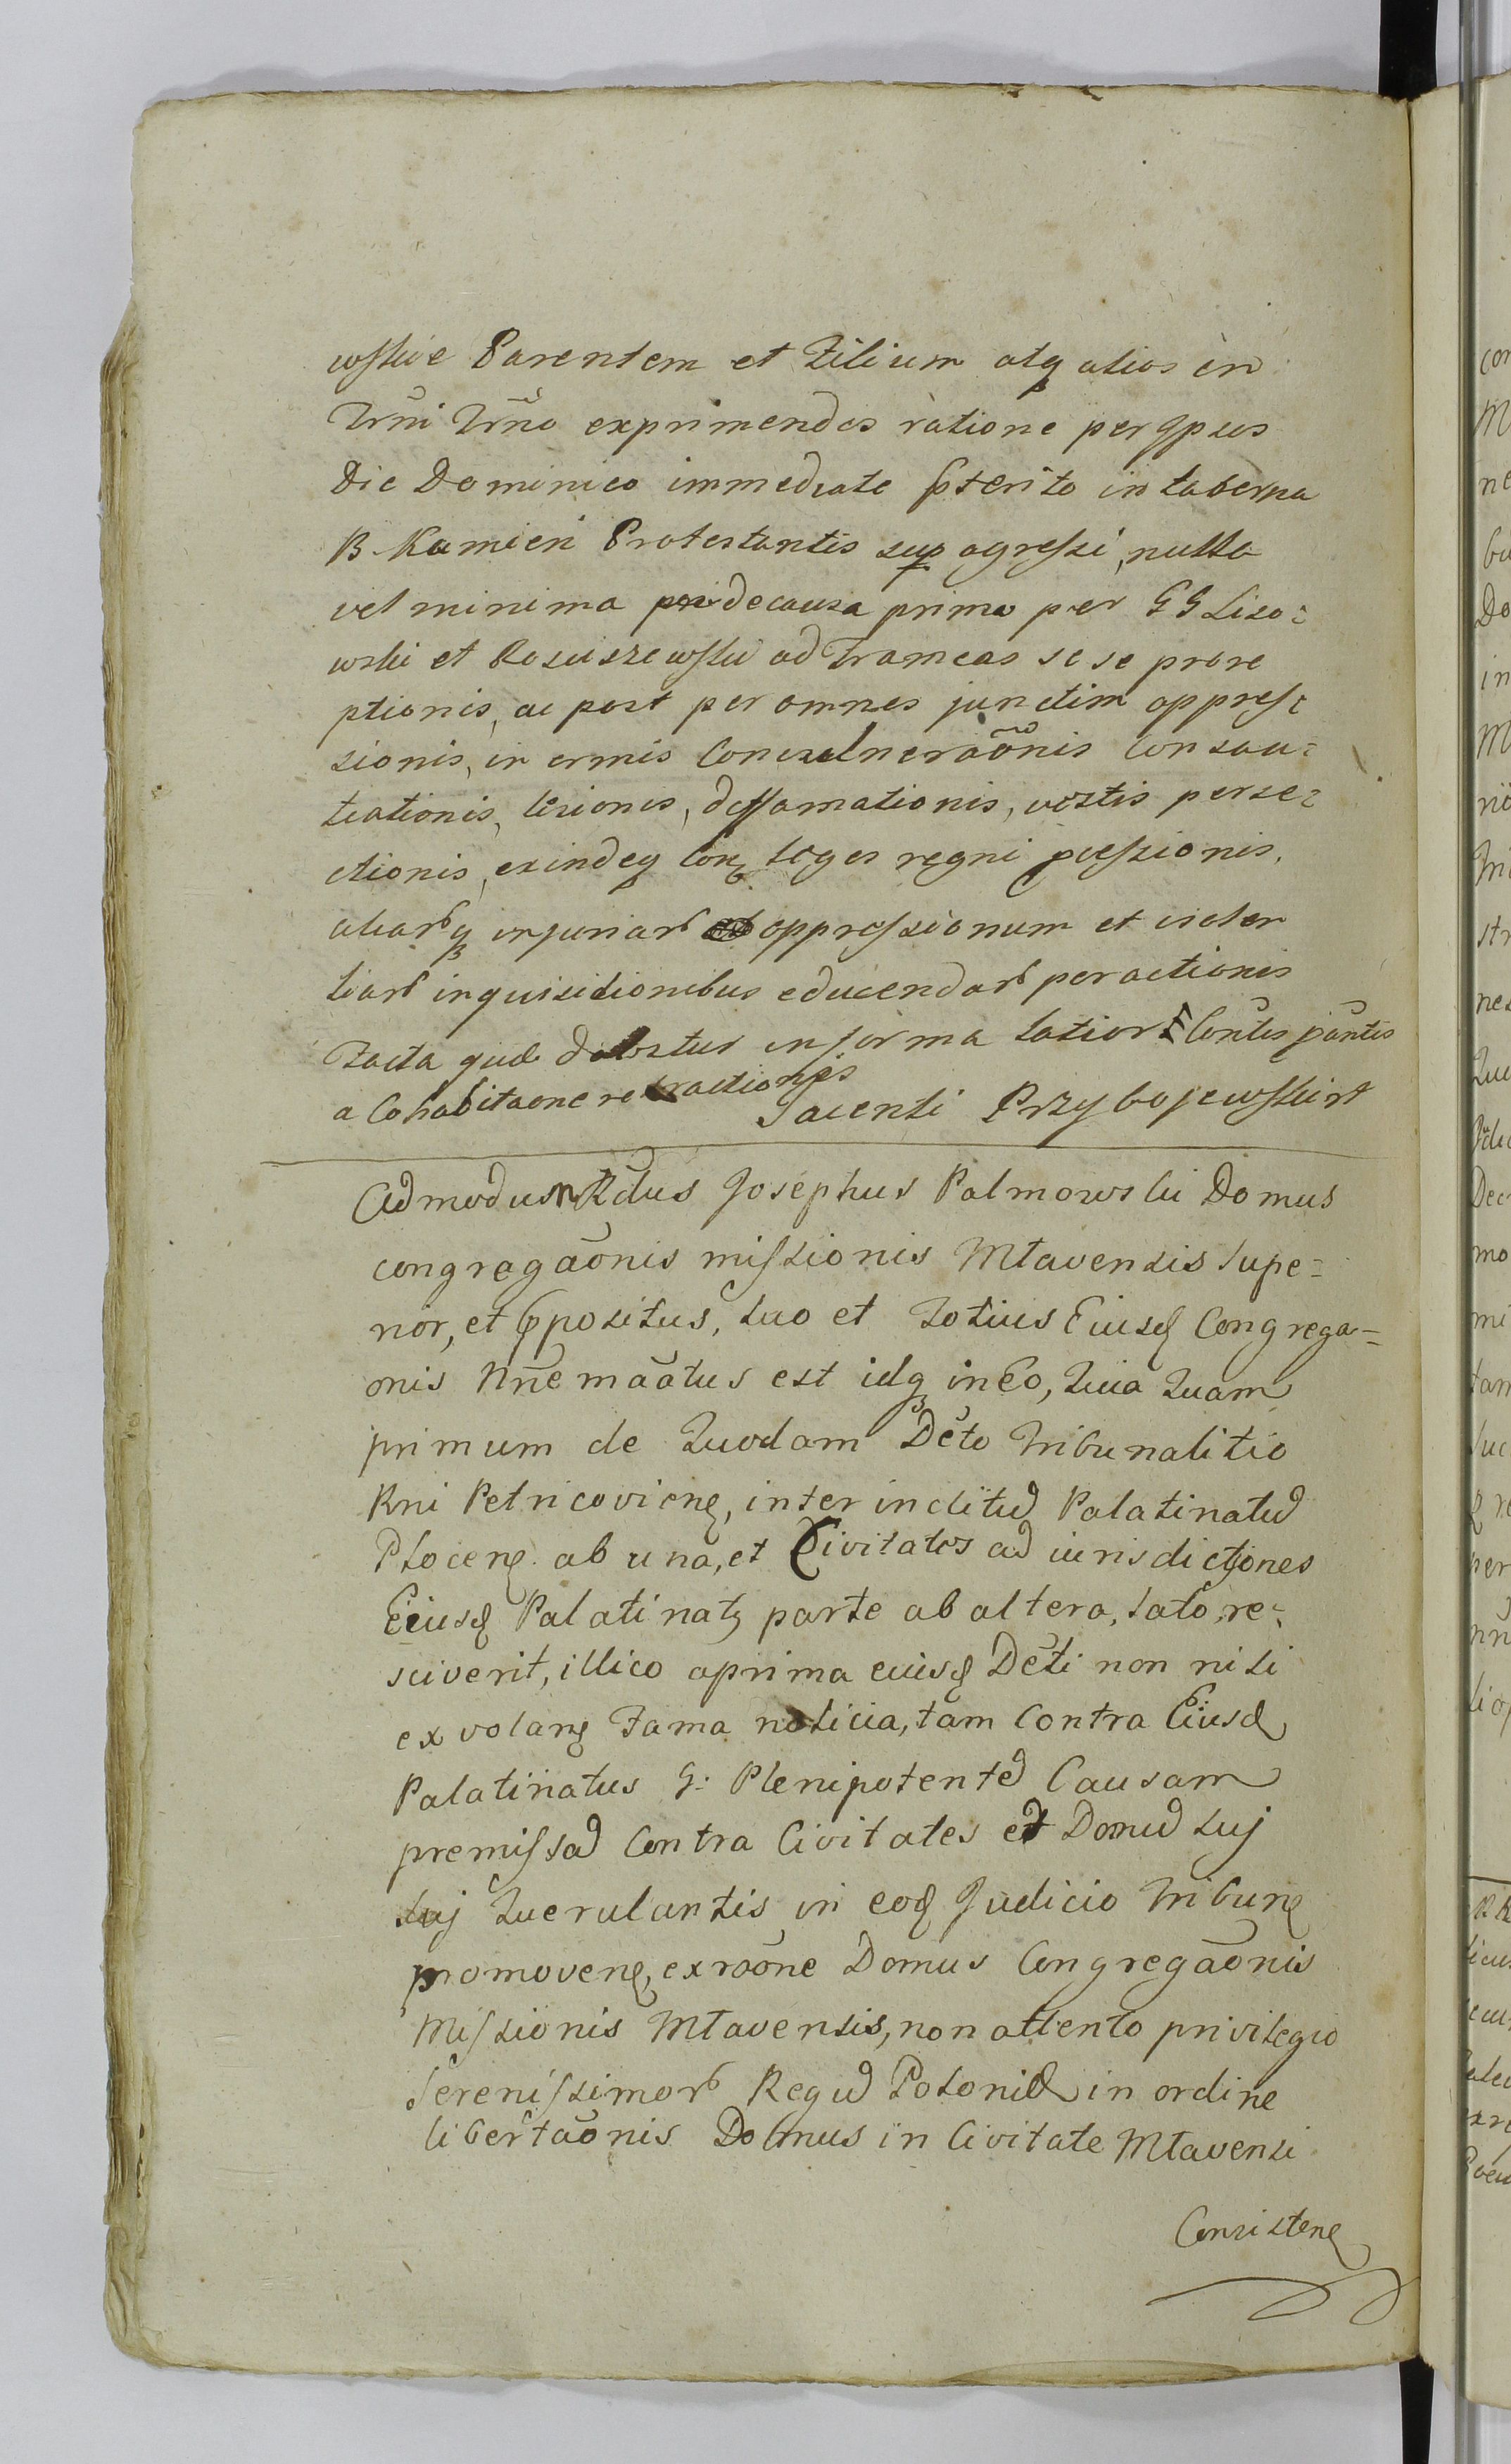 wskie Parentem et Filium atq alios in
Trni Trno exprimendos ratione per Ipsos
Die Dominico immediate pterito in taberna
B. Kamien Protestantis sup agressi, nulla
vel minima pnde causa primo per GG Liso=
wski et Kosuszewski ad Frameas se se prore
ptionis, ac post per omnes junctim oppres=
sionis, in ermis Convulneraonis Consau=
tiationis, lesionis, deffamationis, vestis perse=
ctionis, exindeq Con leges regni pcessionis,
aliarq injuriar oppressionum et violen
tiar inquisitionibus educendar peractionis
Facta quæ datostur in forma latiori Contis jantis
a Cohabitaone retractionis
Jacenti Przybojewskiist
Admodum Rdus Josephus Palmowski Domus
congregaonis missionis Mlavensis Supe=
rior, et Ppositus, suo et Totius Eiusd Congrega=
onis Nne maatus est idq in Eo, Quia Quam
primum de Quodam Deto Tribunalitio
Rni Petricovien, inter inclitud Palatinatud
Plocen. ab una, et Civitates ad iurisdictiones
Eiusd Palatinat9 parte ab altera, lato, re=
sciverit, illico a prima eiusd Deti non nisi
ex volan Fama noticia, tam Contra Eiusd
Palatinatus G: Plenipotented Causam
premissad Contra Civitates et Domud suj
suj Querulantis in eod Judicio Tribun
promoven, ex raone Domus Congregaonis
Missionis Mlavensis, non attento privilegio
Serenissimor Regud Poloniæ in ordine
libertaonis Domus in Civitate Mlavensi
Consisten